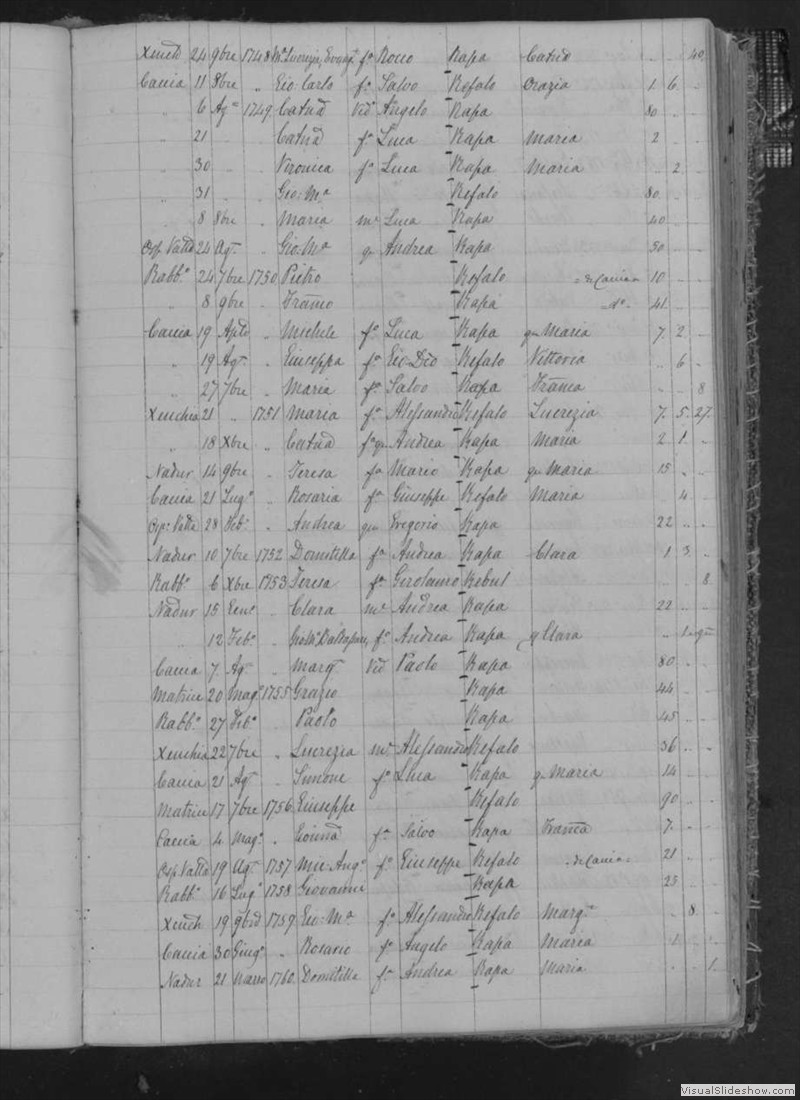 24 9bre 1748 fa Rocco Kapa Catnd 40
Caccia 11 8bre " Gio Carlo fo Salvo Refalo Orazia 1 6 "
" 6 Ago 1749 Catnd Vida Angelo Kapa 80
" 21 " Catnd fa Luca Kapa Maria 2
" 30 " Veronica fa Luca Kapa Maria " 2
" 31 " Gio: Ma Refalo 80
" 8 8bre " Maria me Luca Kapa 40
24 Ago " Gio: Ma qm Andrea Kapa 50
Rabbo 24 7bre 1750 Pietro Refalo = de Caccia = 10
" 8 9bre " Kapa = do = 41
Caccia 19 " Michele fo Luca Kapa qm Maria 7 2
" 19 Ago " Giuseppa fa Refalo Vittoria " 6
" 27 7bre " Maria fa Salvo Kapa Franca " " 8
Xeuchia 21 " 1751 Maria fa Alessandro Refalo Lucrezia 7 5 27
" 18 Xbre " Catnd fa qm Andrea Kapa Maria 2 1 "
Nadur 14 9bre " Teresa fa Mario Kapa qm Maria 15 " "
Caccia 21 Lugo " Rosaria fa Giuseppe Refalo Maria 4
28 Febo " Andrea qm Gregorio Kapa 22
Nadur 10 7bre 1752 Domitilla fa Andrea Kapa Clara 1 3
Rabbo 6 Xbre 1753 Teresa fa Girolamo Rebul 8
Nadur 15 Geno " Clara me Andrea Kapa 22
" 12 Febo " fo Andrea Kapa q Clara
Caccia 7 Ago " Margta Vida Paolo Kapa 80
Matrice 20 Mago 1755 Grazio Kapa 44
Rabbo 27 Febo " Paolo Kapa 45
Xeuchia 22 7bre " Lucrezia me Alessandro Refalo 36
Caccia 21 Ago " Simone fo Luca Kapa q Maria 14
Matrice 17 7bre 1756 Giuseppe Refalo 90
Caccia 4 Mago " fa Salvo Kapa Franca 7
19 Ago 1757 Mic: Ango fo Giuseppe Refalo = de Caccia = 21
Rabbo 16 Lugo 1758 Giovanni Kapa 25
19 1759 Gio: Ma fo Alessandro Refalo Margta 8
Caccia 30 Giugo " Rosario fo Angelo Kapa Maria 1
Nadur 21 Marzo 1760 Domitilla fa Andrea Kapa Maria 1
VisualSlideshow.com